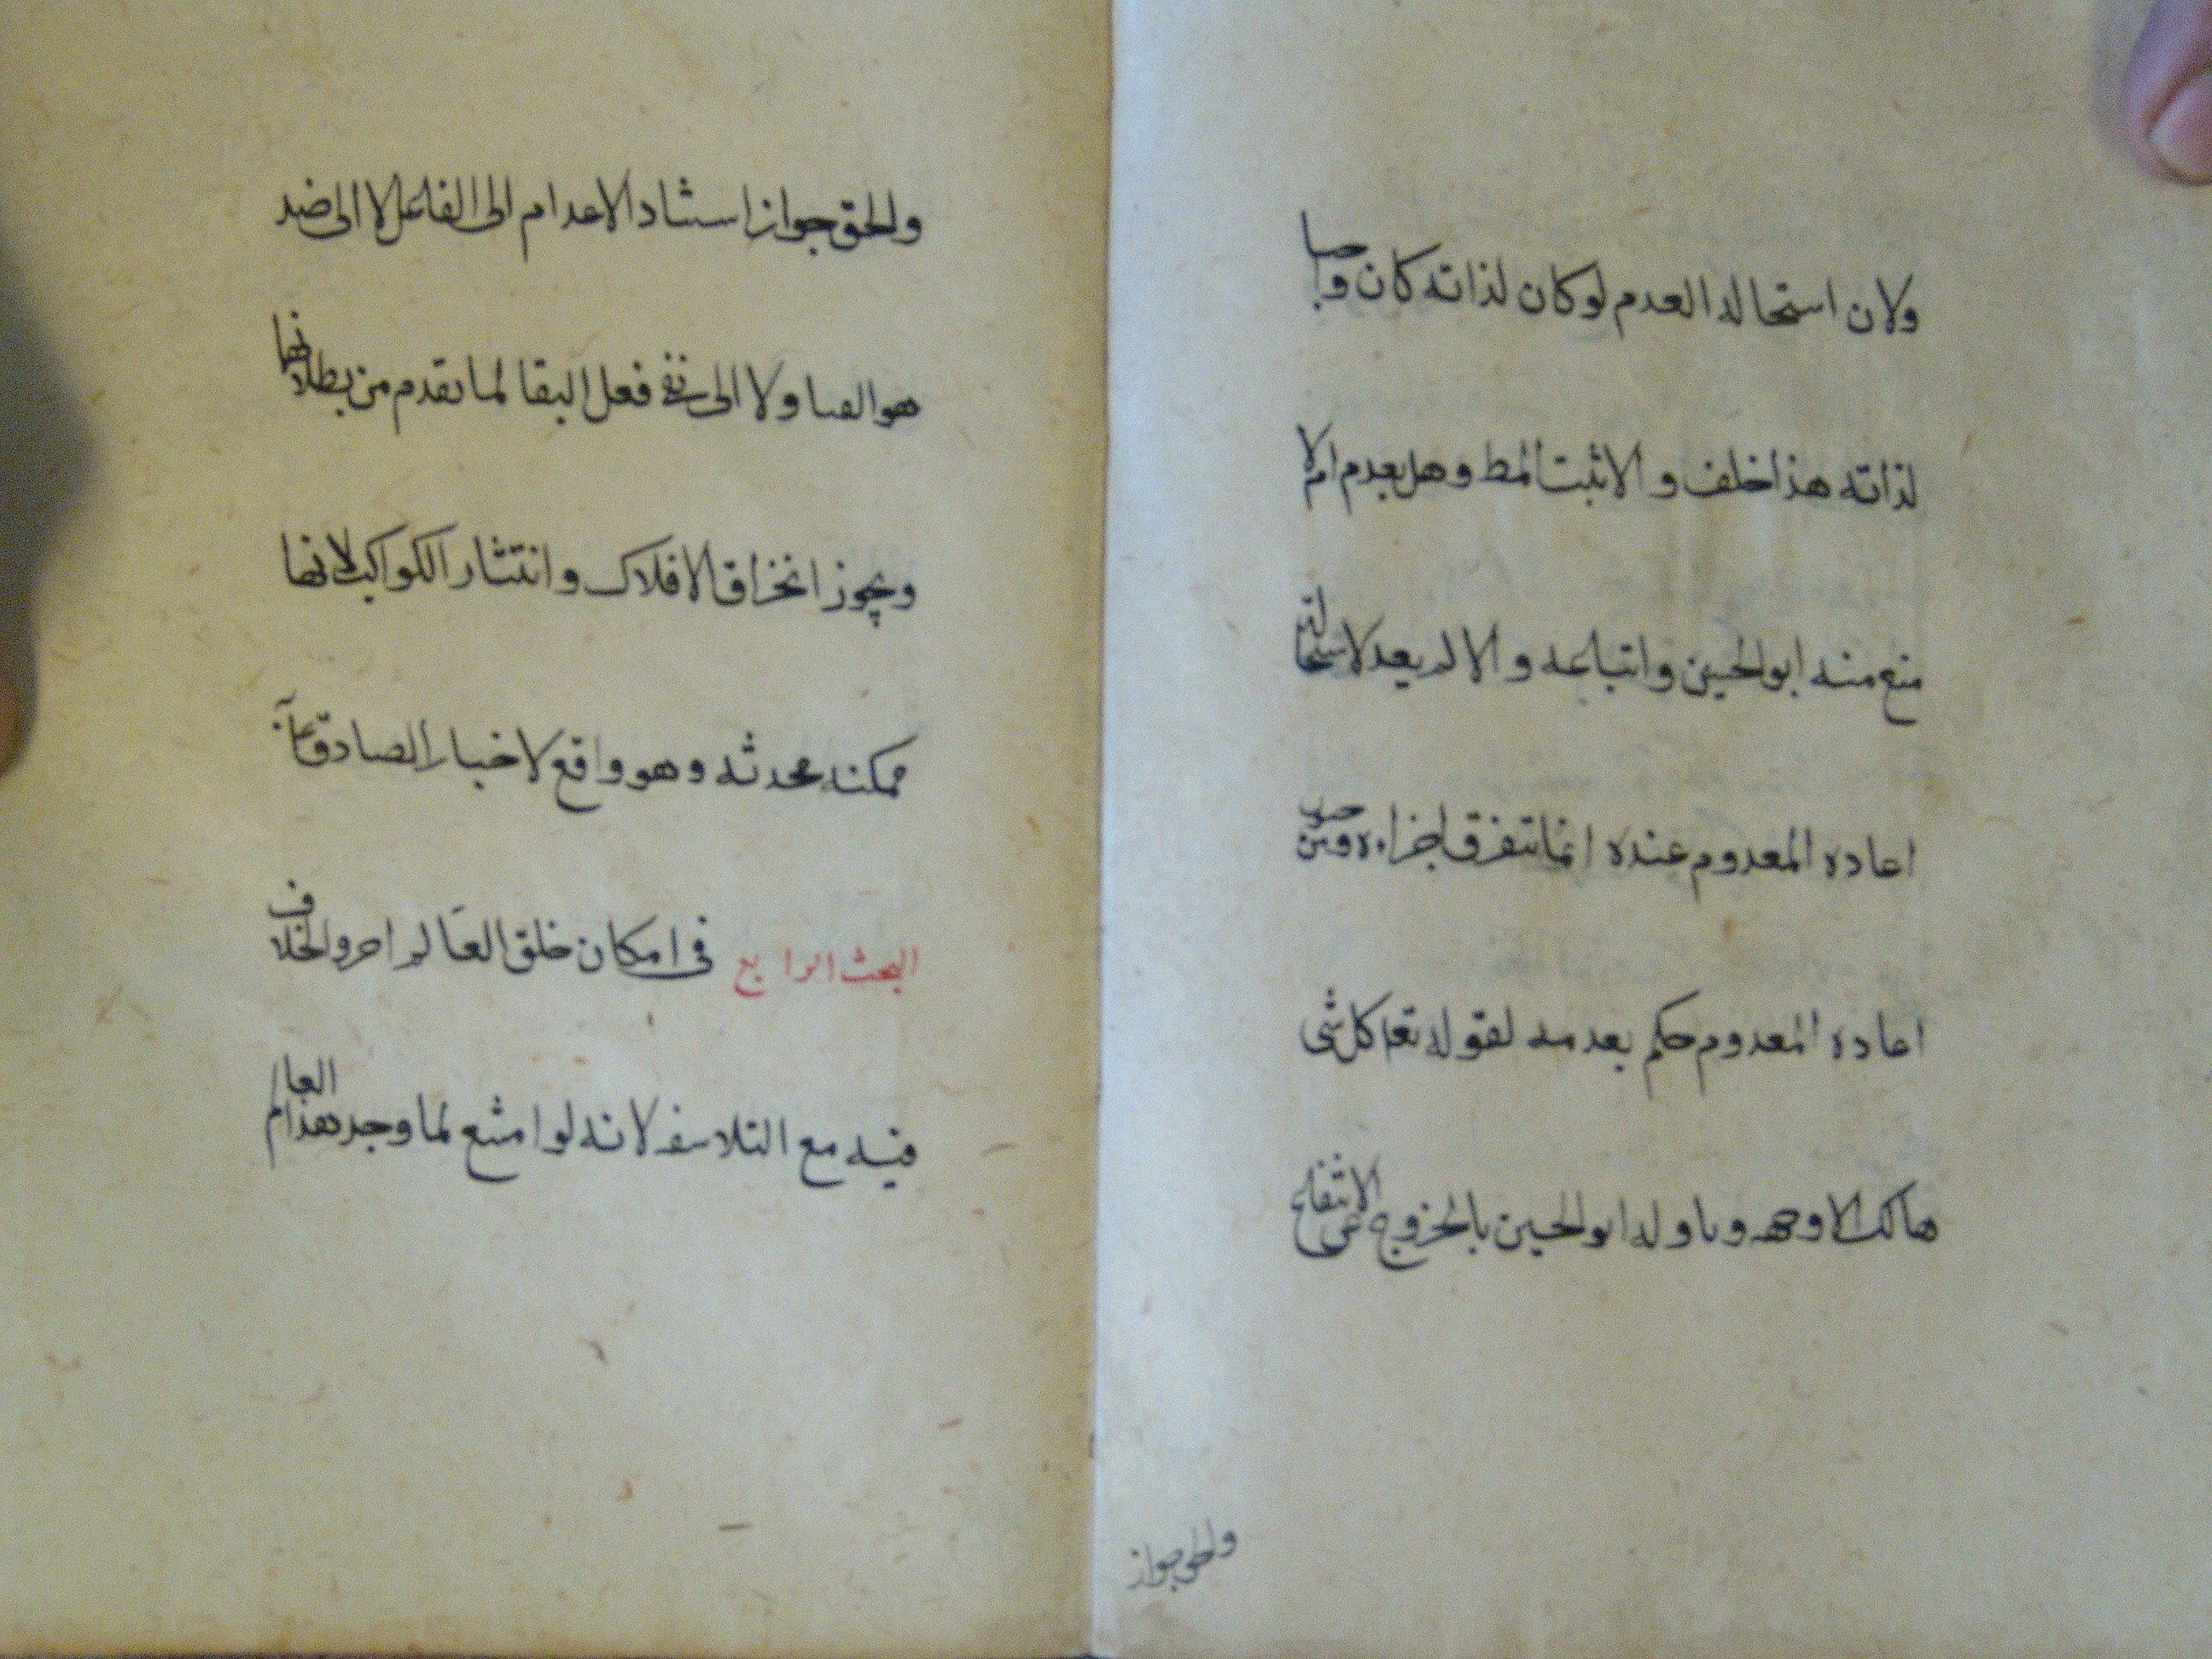 ولان استحاله العدم لو كان لذاته كان واجبا
لذاته هذا خلف والا ثبت المط وهل يعدم ام لا
منع منه ابو الحسين واتباعه والا لم يعد لاستحالته
اعاده المعدوم عنده انما تتفرق اجزاءه ومن جوز
اعاده المعدوم حكم بعدمه لقوله تعا كل شى
هالك الا وجهه وتاوله ابو الحسين بالخروج عن الانتفاع
والحق جواز
والحق جواز استناد الاعدام الى الفاعل لا الى ضد
هو الفنا ولا الى نفى فعل البقا لما تقدم من بطلانها
ويجوز انخراق الافلاك وانتثار الكواكب لانها
ممكنه محدثه وهو واقع لاخبار الصادق
البحث الرابع فى امكان خلق العالم اخر والخلاف
فيه مع الفلاسفه لانه لو امتنع لما وجد هذا العالم